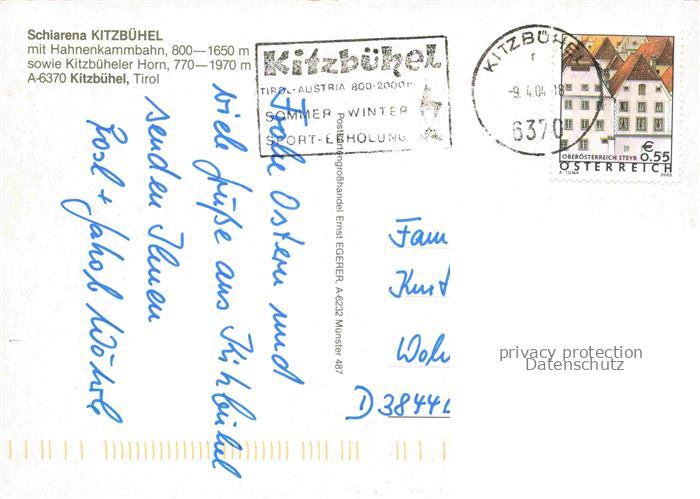 Schiarena KITZBÜHEL
mit Hahnenkammbahn, 800—1650 m
sowie Kitzbüheler Horn, 770—1970 m
A-6370 Kitzbühel, Tirol
Kitzbühel
TIROL-AUSTRIA 800-2000m
SOMMER-WINTER
SPORT-ERHOLUNG
KITZBÜHEL
-9.4.04-18
6370
OBERÖSTERREICH STEYR
€ 0.55
A. TUMA
2003
ÖSTERREICH
Frohe Ostern und
viele Grüße aus Kitzbühel
senden Ihnen
Rosl + Jakob Wöhrl
Postkartengroßhandel Ernst EGERER, A-6232 Münster 487
Fam
Kurt
D 3844
privacy protection
Datenschutz